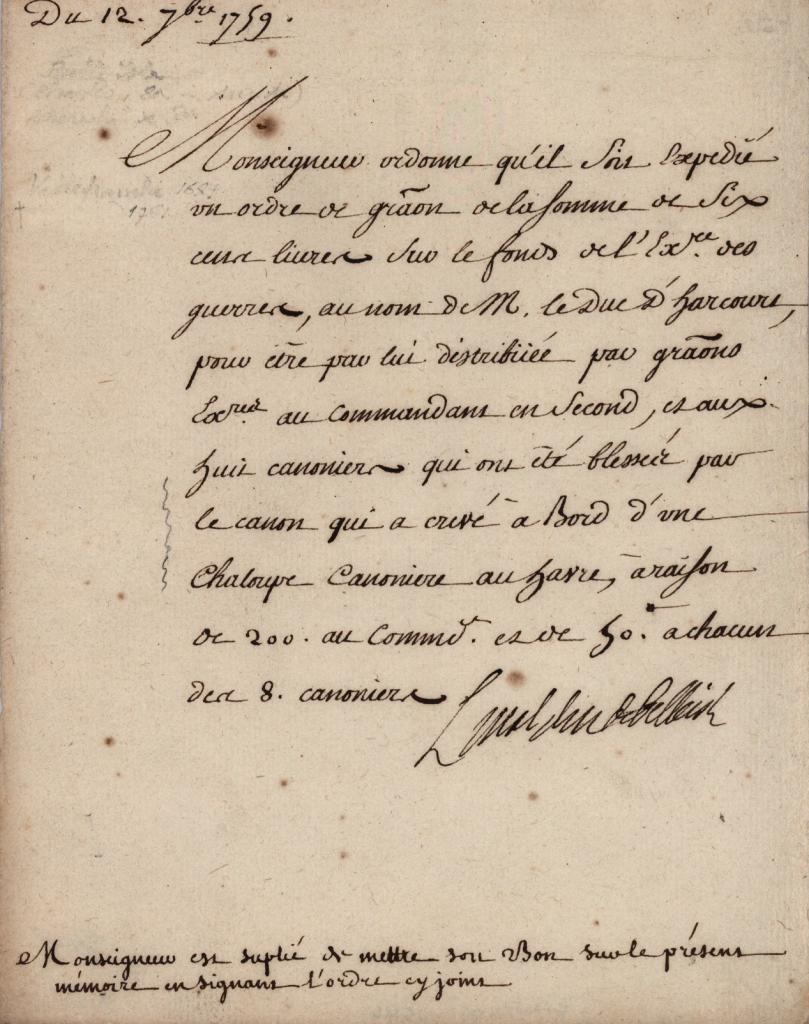 Du 12. 7bre 1759.
Monseigneur ordonne qu'il soit Expedié
un ordre de grãon de la somme de Six
cens livres sur le fonds de l'Exre. des
guerres, au nom de M. le Duc d'harcourt,
pour être par lui distribüée par grãons
Exres. au Commandant en Second, et aux
huit canoniers qui ont été blessés par
le canon qui a crevé à Bord d'une
Chaloupe Canoniere au havre, à raison
de 200. au Commdt. et de 50. a chacun
des 8. canoniers
Monseigneur est suplié de mettre son Bon sur le présent
mémoire en signant l'ordre cy joint